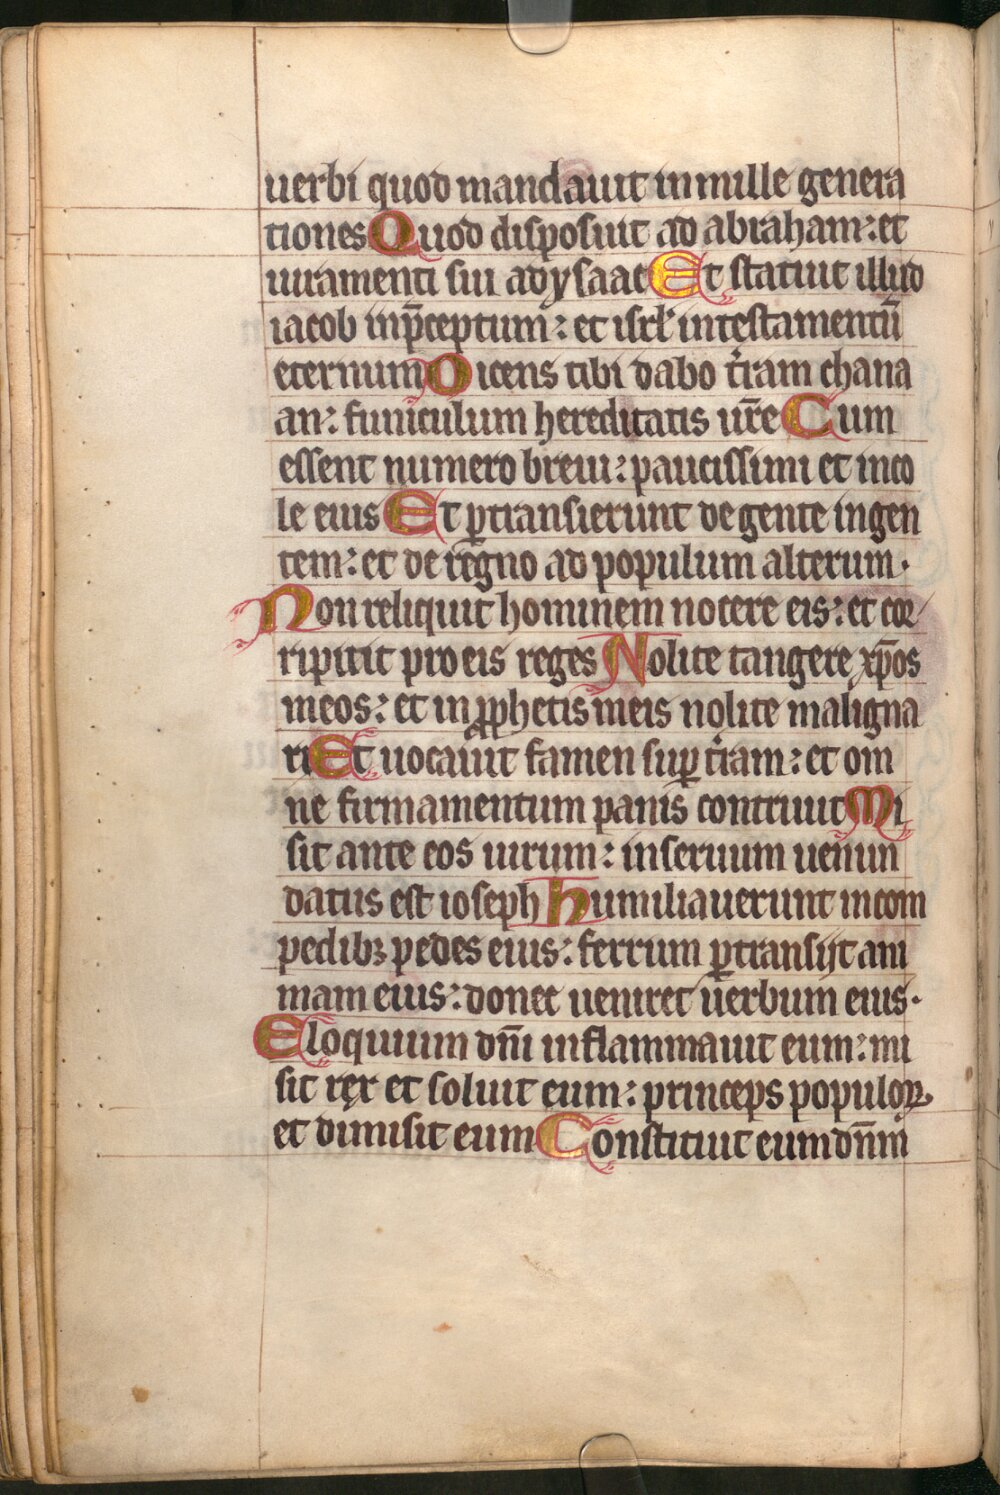 uerbi quod mandauit in mille genera
tiones Quod disposuit ad abraham: et
iuramenti sui ad ysaac Et statuit illud
iacob in p̄ceptum: et isrl' in testamentū
eternum Dicens tibi dabo t̉ram chana
an: funiculum hereditatis ur̄e Cum
essent numero breui: paucissimi et inco
le eius Et ꝑtransierunt de gente in gen
tem: et de regno ad populum alterum.
Non reliquit hominem nocere eis: et cor
ripuit pro eis reges Nolite tangere xp̄os
meos: et in ꝓphetis meis nolite maligna
ri Et uocauit famen suꝑ t̉ram: et om
ne firmamentum panis contriuit Mi
sit ante eos uirum: in seruum uenun
datus est ioseph Humiliauerunt in com
pedibꝫ pedes eius: ferrum ꝑtransijt ani
mam eius: donec ueniret uerbum eius.
Eloquium dn̄i inflammauit eum: mi
sit rex et soluit eum: princeps populoꝝ
et dimisit eum Constituit eum dn̄m